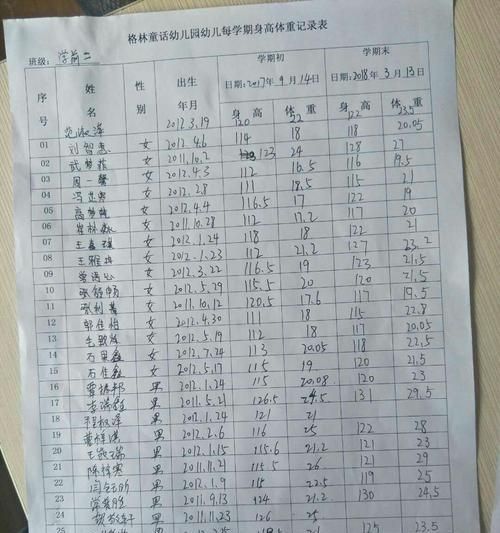 格林童话幼儿园幼儿每学期身高体重记录表
班级: 学前二
序号 姓名 性别 出生年月 学期初 学期末
日期:2017年9月14日 日期:2018年3月13日
身高 体重 身高 体重
2012.3.19 120 22 122 23.5
01 刘智惠 女 2012.4.6 114 18 118 20.05
02 武梦菲 女 2011.10.2 123 24 128 27
03 周一馨 女 2012.4.3 112 16.5 116 19.5
04 女 2012.2.8 111 18 115 21
05 高梦婕 女 2012.4.4 116.5 17 122 19
06 女 2011.10.28 112 17.2 117 20
07 王嘉琪 女 2012.1.24 118 18 122 21
08 王雅冉 女 2012.1.23 112 21.2 127 23.2
09 女 2012.3.22 116.5 19 123 21.5
10 张舒畅 女 2012.5.29 115.5 20 120 21.5
11 女 2011.10.12 120.5 17.6 117 19.5
12 郭佳怡 女 2012.4.30 111 18 115 22.8
13 女 2012.5.19 112 18 117 20.05
14 女 2012.7.24 113 20.05 118 22.5
15 石佳鑫 女 2012.5.17 115 19 120 21.5
16 贾振邦 男 2012.1.24 115 20.08 120 23
17 男 2011.5.21 126.5 24.5 131 29.5
18 程权泽 男 2012.1.24 121 21
19 男 2012.2.6 116 25 122 28
20 王毅瑞 男 2012.1.15 115.6 21.2 121 23
21 陈梓寒 男 2011.11.21 115.5 26 121 29
22 男 2012.1.9 115 22.5 119 25
23 男 2011.9.13 124 21.2 130 24.5
24 男 2011.11.23 126 25
25 125 23.5